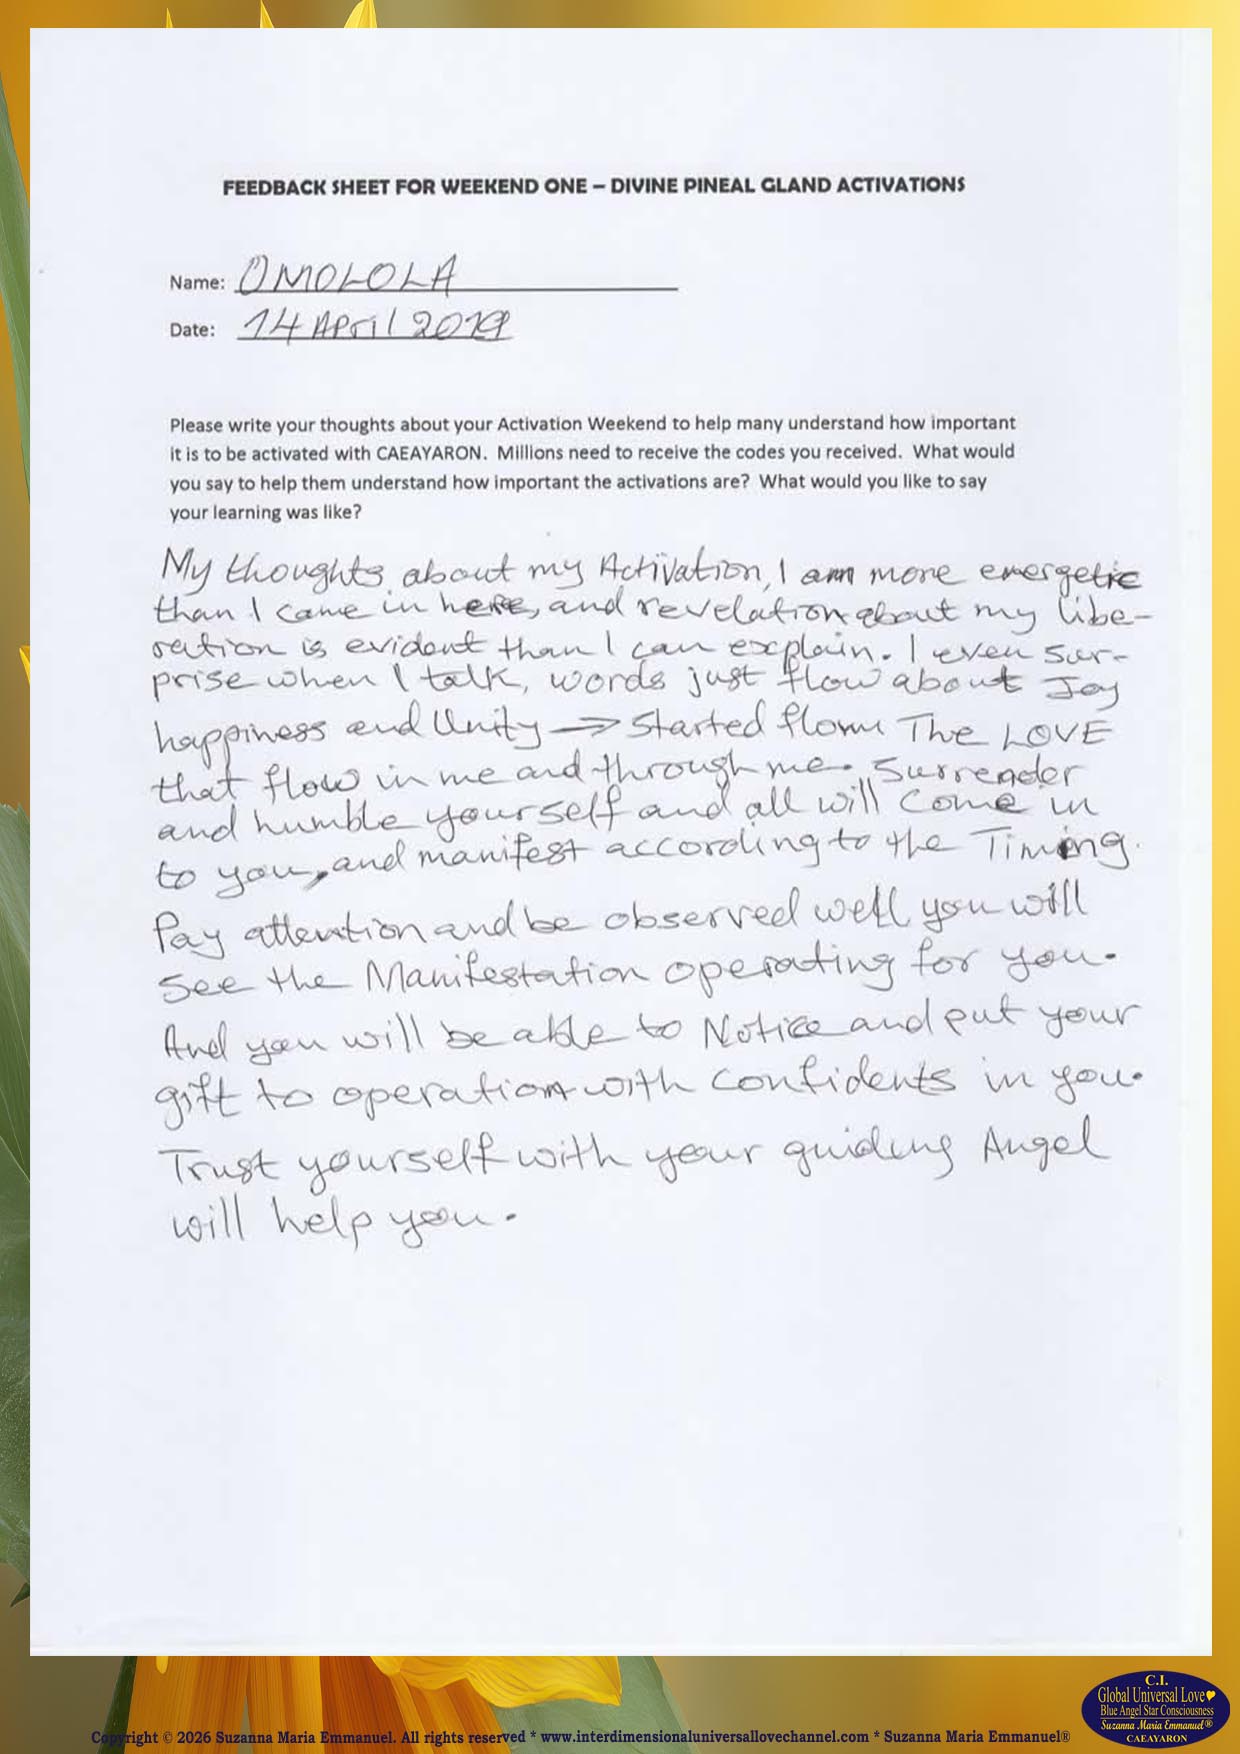 FEEDBACK SHEET FOR WEEKEND ONE – DIVINE PINEAL GLAND ACTIVATIONS
Name: OMOLOLA
Date: 14 April 2019
Please write your thoughts about your Activation Weekend to help many understand how important
it is to be activated with CAEAYARON. Millions need to receive the codes you received. What would
you say to help them understand how important the activations are? What would you like to say
your learning was like?
My thoughts about my Activation, I am more energetic
than I came in here, and revelation about my libe-
ration is evident than I can explain. I even sur-
prise when I talk, words just flow about Joy
happiness and Unity → Started The LOVE
that flow in me and through me. Surrender
and humble yourself and all will come in
to you, and manifest according to the Timing.
Pay attention and be observed well you will
see the Manifestation operating for you.
And you will be able to Notice and put your
gift to operation with confidents in you.
Trust yourself with your guiding Angel
will help you.
C.I.
Global Universal Love
Blue Angel Star Consciousness
Suzanna Maria Emmanuel®
CAEAYARON
Copyright © 2026 Suzanna Maria Emmanuel. All rights reserved * www.interdimensionaluniversallovechannel.com * Suzanna Maria Emmanuel®